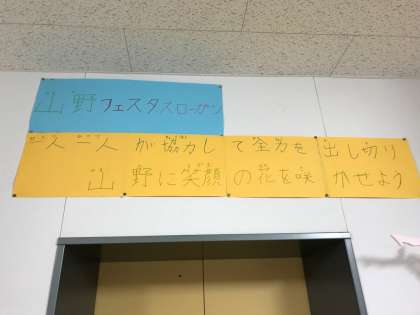 山野フェスタスローガン
一人一人が協力して全力を出し切り
山野に笑顔の花を咲かせよう